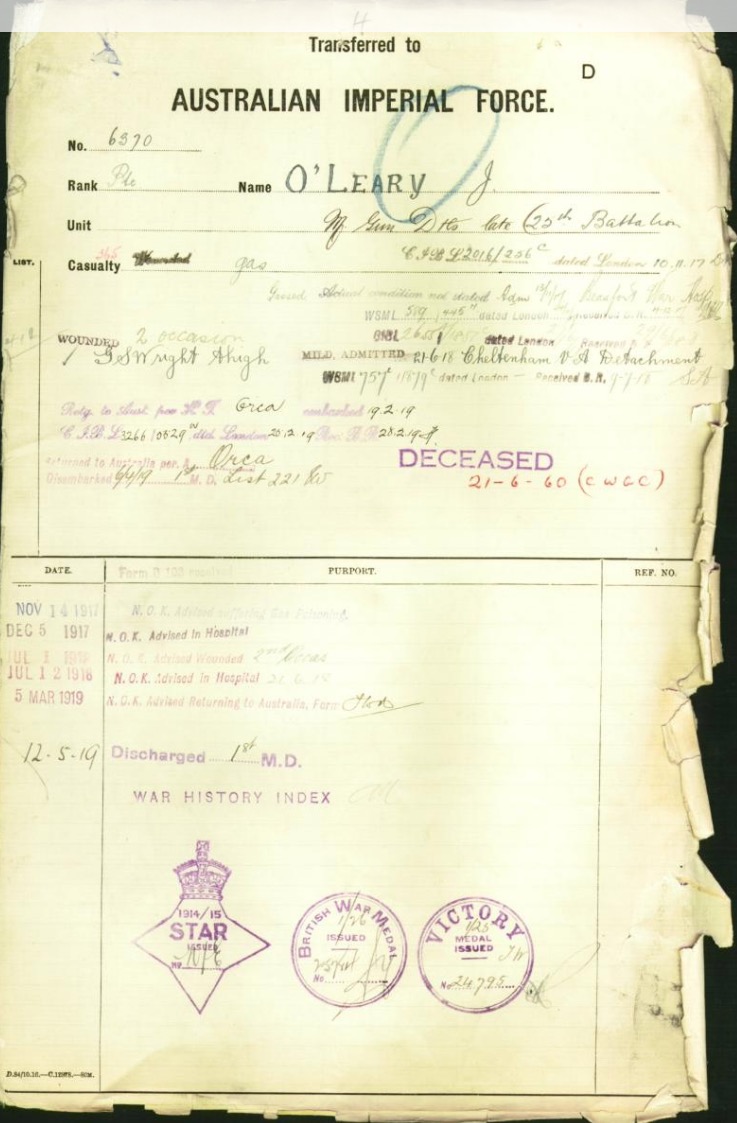 Transferred to
D
AUSTRALIAN IMPERIAL FORCE.
No. 6370
Rank Pte Name O'LEARY J.
Unit M Gun Dtls late (25th Battalion
LIST.
Casualty Wounded gas C I B L 2016/256 c dated London 10.11.17
Gassed Actual condition not stated Adm Beaufort War Hosp
WSML 589 445 dated London Received B.R.
WOUNDED 2 occasion dated London Received
GSW right thigh MILD, ADMITTED 21.6.18 Cheltenham V A Detachment
WSML 757 dated London — Received B.R. 9-7-18
Retg. to Aust. per H.T. Orca embarked 19.2.19
C.I.B.L 3266 dtd. London 20.12.19 Rec. B.R. 28.2.19
Returned to Australia per. Orca
Disembarked 1st M.D. List 221
DECEASED
21-6-60 (CWGC)
DATE. PURPORT. REF. NO.
NOV 14 1917 N.O.K. Advised suffering Gas Poisoning.
DEC 5 1917 N.O.K. Advised In Hospital
JUL 1 1918 N.O.K. Advised Wounded 2nd Occas
JUL 12 1918 N.O.K. Advised in Hospital 21.6.18
5 MAR 1919 N.O.K. Advised Returning to Australia, Form
12-5-19 Discharged 1st M.D.
WAR HISTORY INDEX
1914/15
STAR
ISSUED
No. N/E
BRITISH WAR MEDAL
1/26
ISSUED
No
VICTORY
1/25
MEDAL
ISSUED
No 24795